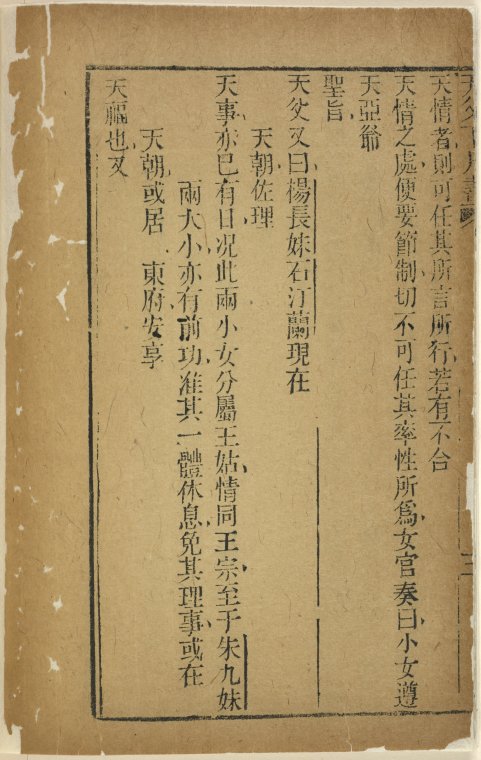 天父下凡詔書
天情者則可任其所言所行若有不合
天情之處便要節制切不可任其率性所為女官奏曰小女遵
天亞爺
聖旨
天父又曰楊長妹石汀蘭現在
天朝佐理
天事亦已有日况此兩小女分屬王姑情同王宗至于朱九妹
兩大小亦有前功准其一體休息免其理事或在
天朝或居 東府安享
天福也又